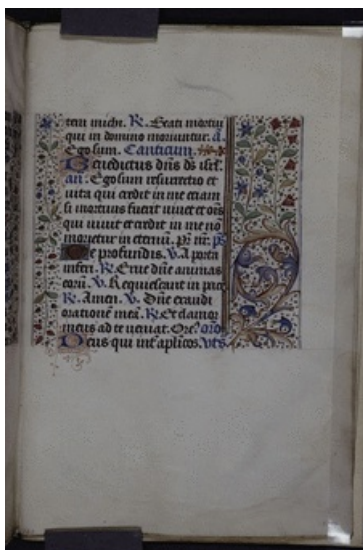 tem michi. R. Beati mortui
qui in domino moriuntur. a.
Ego sum. Canticum.
Benedictus dñs ds isrl.
an. Ego sum resurectio et
vita qui credit in me etiam
si mortuus fuerit vivet et oñs
qui vivit et credit in me no
morietur in eternũ. Pr nr. ps
De profundis. V. A porta
inferi. R. Erue dñe animas
eorũ. V. Requiescant in pace
R. Amen. V. Dñe exaudi
orationẽ meã. R. Et clamor
meus ad te veniat. Ore. oro
Deus qui int aplicos. vts